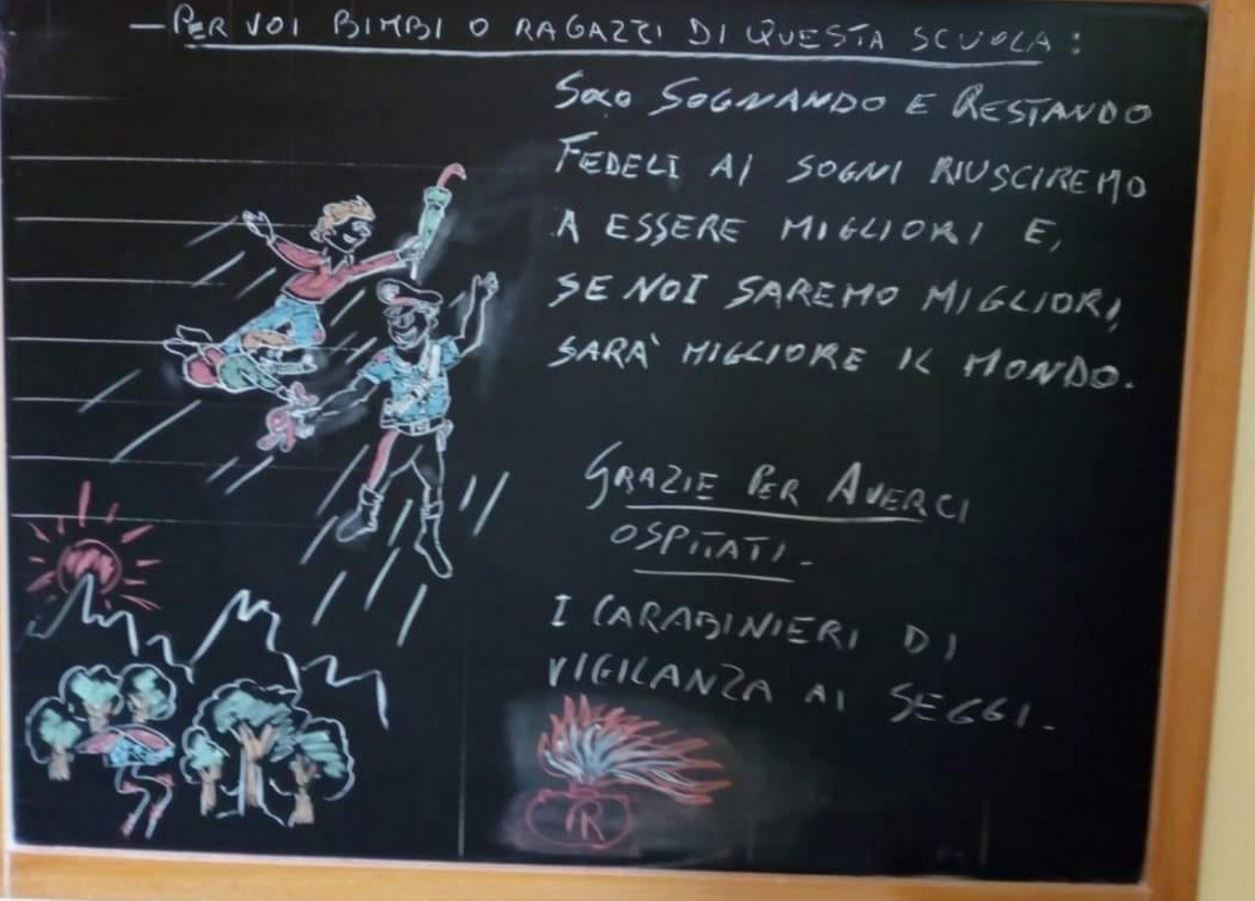 — PER VOI BIMBI O RAGAZZI DI QUESTA SCUOLA :
SOLO SOGNANDO E RESTANDO
FEDELI AI SOGNI RIUSCIREMO
A ESSERE MIGLIORI E,
SE NOI SAREMO MIGLIORI,
SARA' MIGLIORE IL MONDO.
GRAZIE PER AVERCI
OSPITATI.
I CARABINIERI DI
VIGILANZA AI SEGGI.
RI